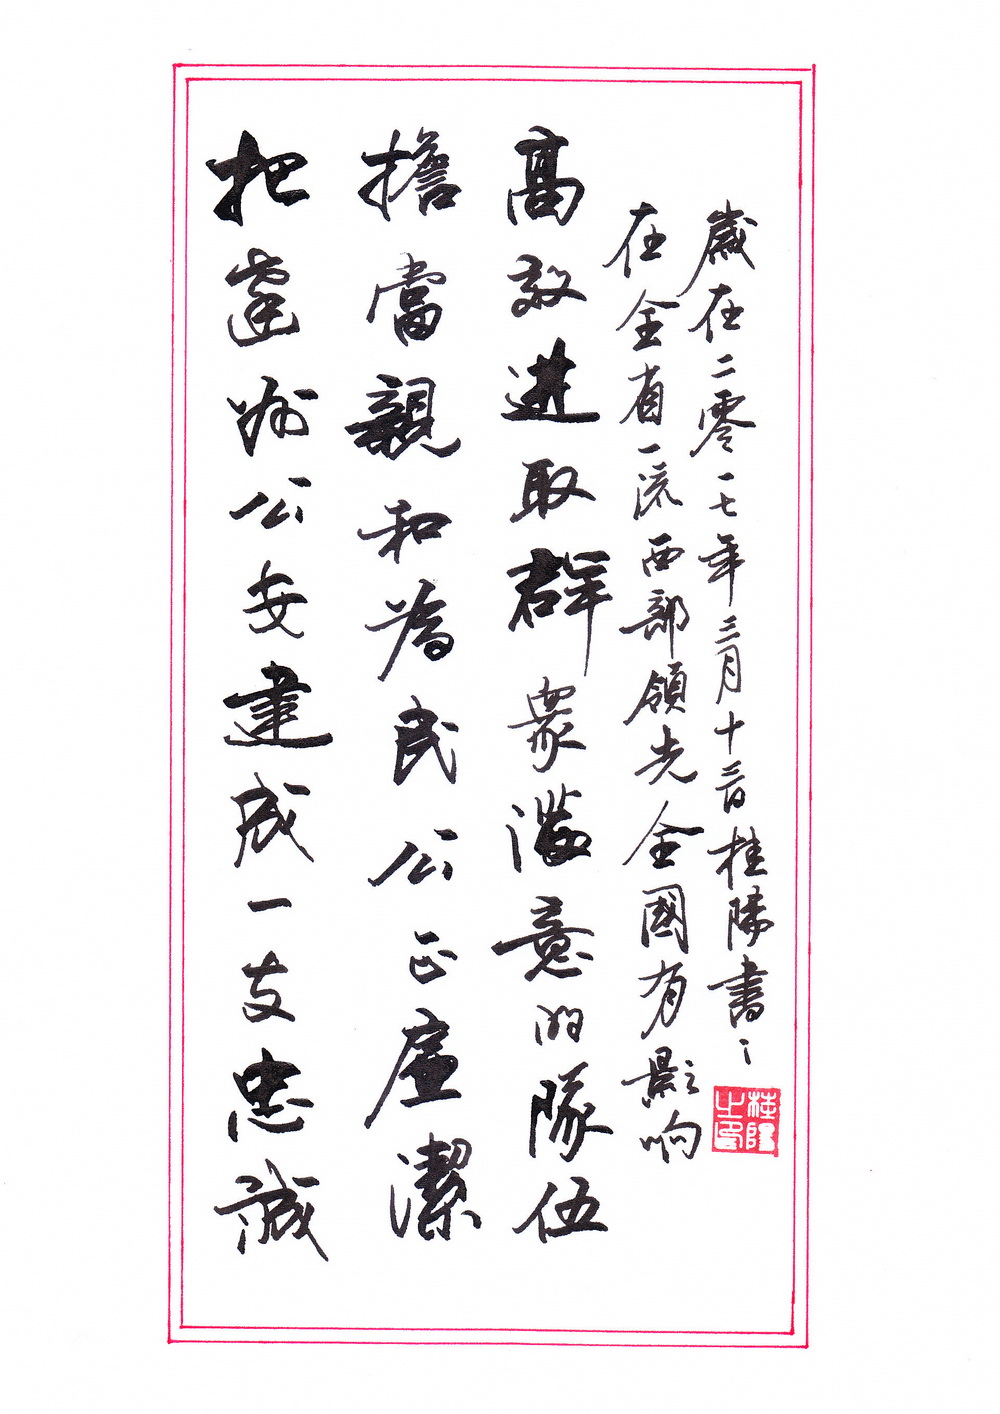 把達州公安建成一支忠誠
擔當親和為民公正廉潔
高效進取群眾滿意的隊伍
在全省一流西部領先全國有影响
歲在二零一七年三月十三日桂陽書之